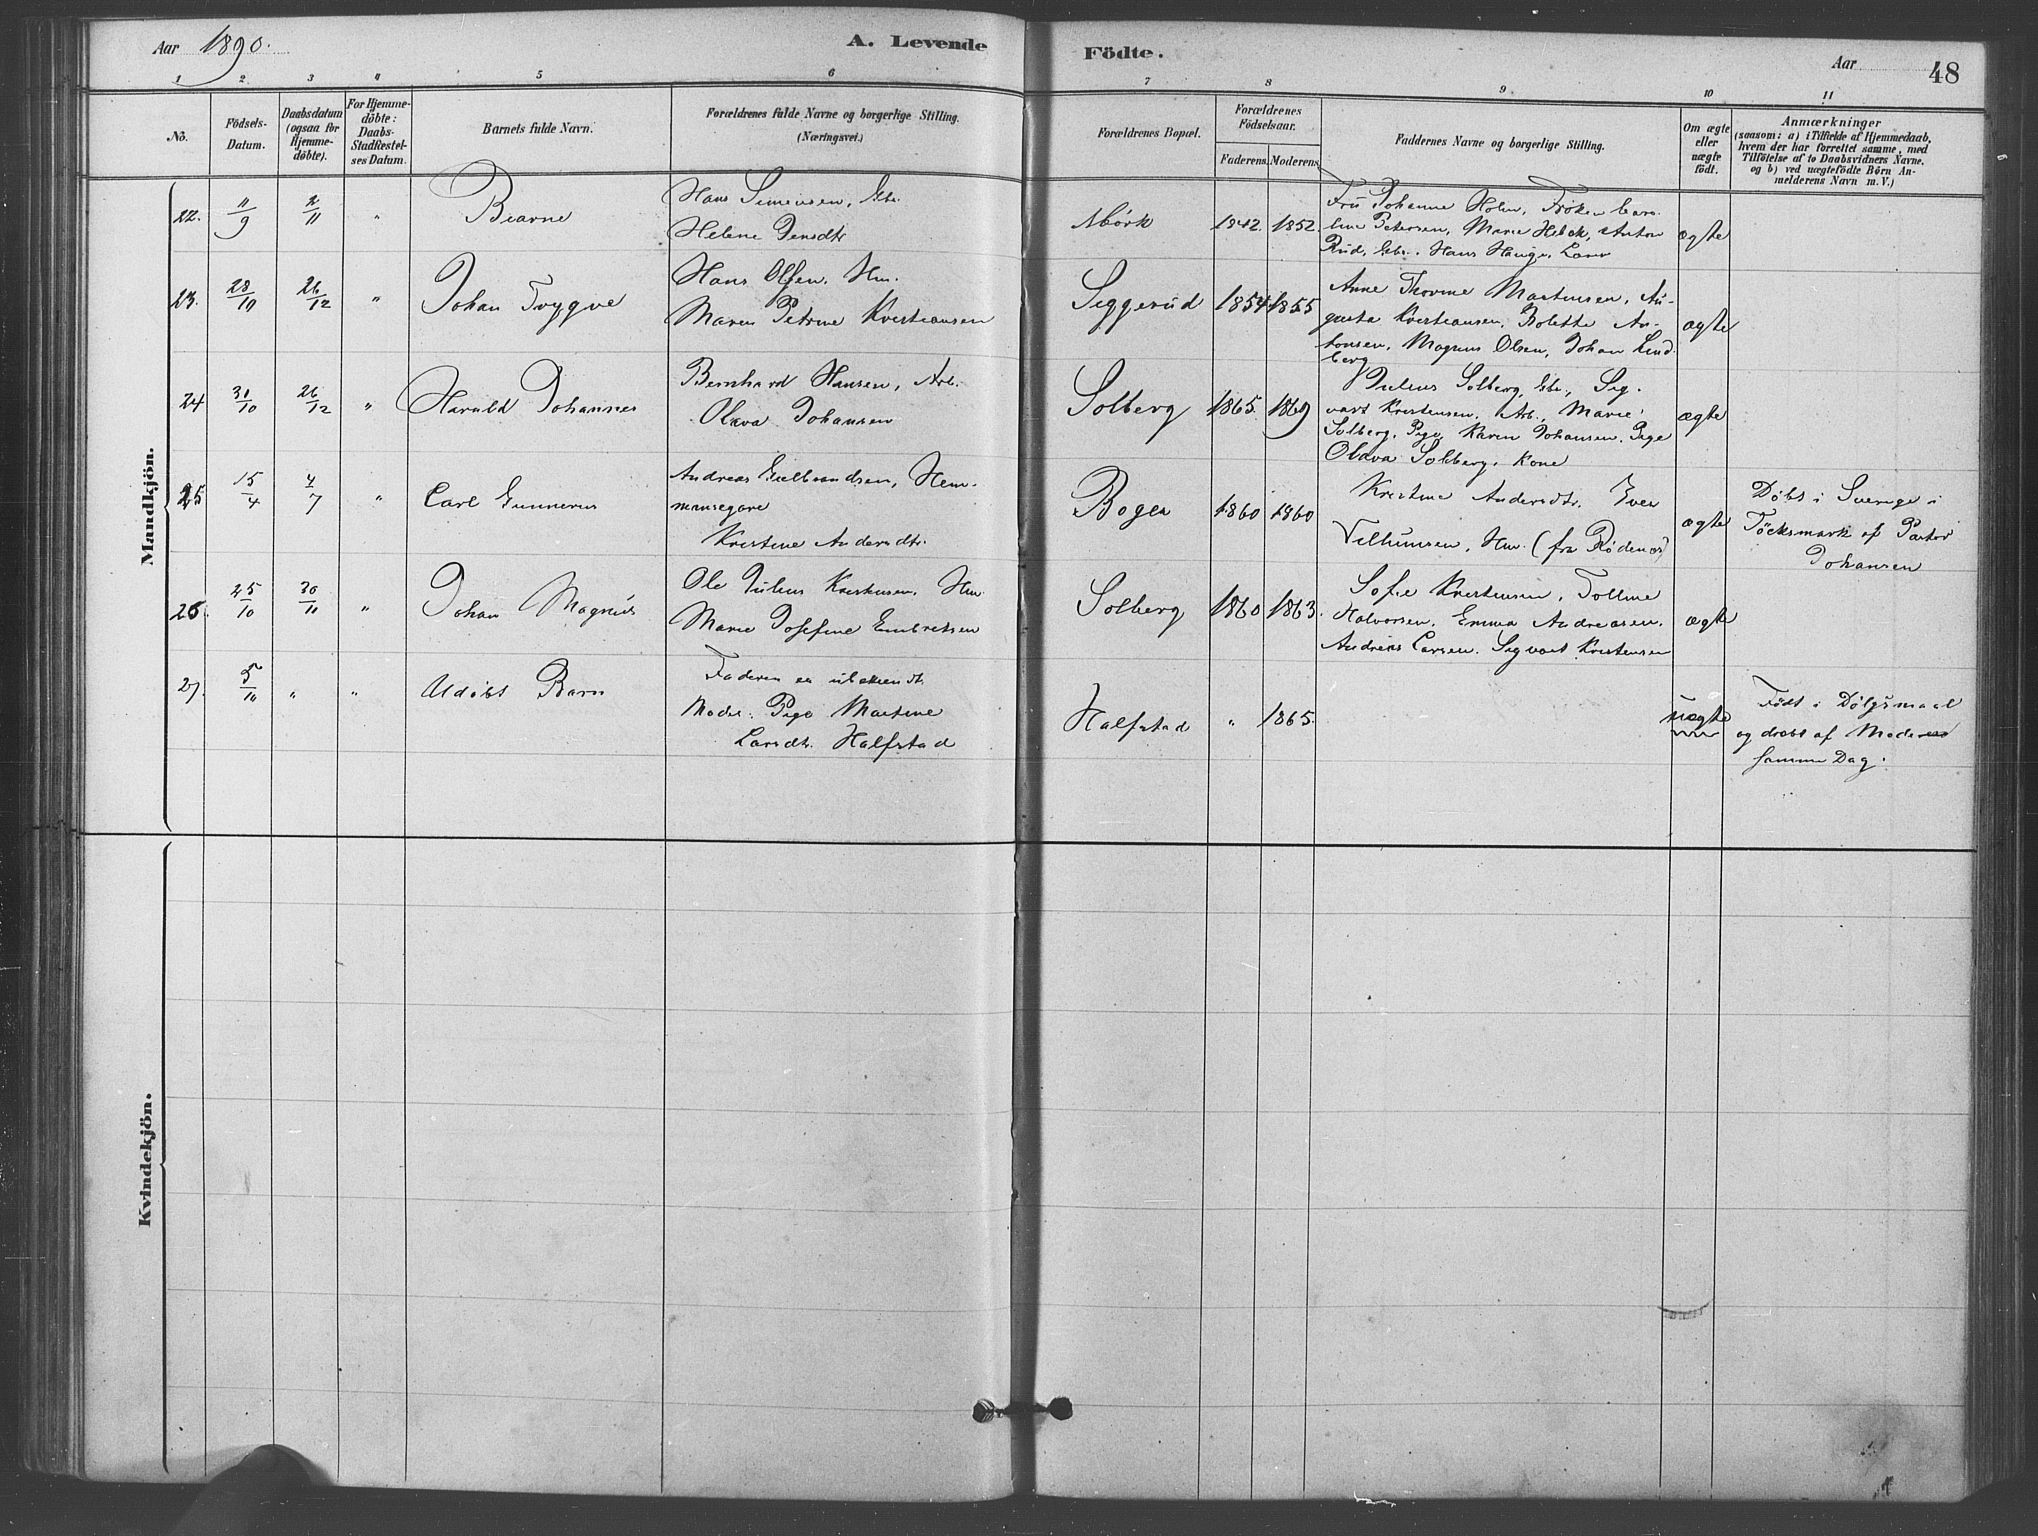 Aar 1890.
A. Levende
Födte.
Aar
48
1 2 3 4 5 6 7 8 9 10 11
No.
Födsels-
Datum.
Daabsdatum
(ogsaa for
Hjemme-
döbte).
For Hjemme-
döbte:
Daabs-
Stadfæstel-
ses Datum.
Barnets fulde Navn.
Forældrenes fulde Navne og borgerlige Stilling.
(Næringsvei.)
Forældrenes Bopæl.
Forældrenes
Födselsaar.
Faderens. Moderens.
Faddernes Navne og borgerlige Stilling.
Om ægte
eller
uægte
födt.
Anmærkninger
(saasom: a) i Tilfælde af Hjemmedaab,
hvem der har forrettet samme, med
Tilföielse af to Daabsvidners Navne.
og b) ved uægtefödte Börn An-
melderens Navn m. V.)
Mandkjön.
22.
11/9
2/11
"
Bjarne
Hans Simensen, Gbr.
Helene Jensdtr
Mörk
1842. 1852.
Fru Johanne Holm, Fröken Caro-
line Petersen, Marie Hebek, Anton
Rud, Gbr. Hans Hauge,
ægte
23.
28/10
26/12
"
Johan Trygve
Hans Olsen, Hm.
Maren Petrine Kristiansen
Siggerud
1854 1855
Anne Thorine Martinsen, Au-
gusta Kristiansen, Bolette An-
tonsen, Magnus Olsen, Johan Lind-
berg
ægte
24
31/10
26/12
"
Harald Johannes
Bernhard Hansen, Arb.
Olava Johansen
Solberg
1865. 1869
Julius Solberg, Gbr., Sig-
vart Kristensen, Arb., Marie
Solberg, Pige, Karen Johansen, Pige
Olava Solberg, Kone
ægte
25
15/4
4/7
"
Carl Gunnerus
Andreas Gulbrandsen, Hem-
mansegare
Kristine Andersdtr.
Bogen
1860 1860
Kristine Andersdtr. Iver
Vilhumsen, Hm. (fra Rödenes)
ægte
Döbt i Sverige i
Töcksmark af Pastor
Johansen
26.
25/10
30/11
"
Johan Magnus
Ole Julius Kristensen, Hm.
Marie Josefine Embretsen
Solberg
1860 1863.
Sofie Kristensen, Tolline
Halvorsen, Emma Andreasen.
Andreas Larsen. Sigvart Kristensen
ægte
27.
5/11
"
"
Udöbt Barn
Faderen er ubekjendt.
Moder: Pige Martine
Larsdtr. Halfstad
Halfstad
" 1865.
uægte
Födt i Dölgsmaal
og dræbt af Moderen
samme Dag.
Kvindekjön.